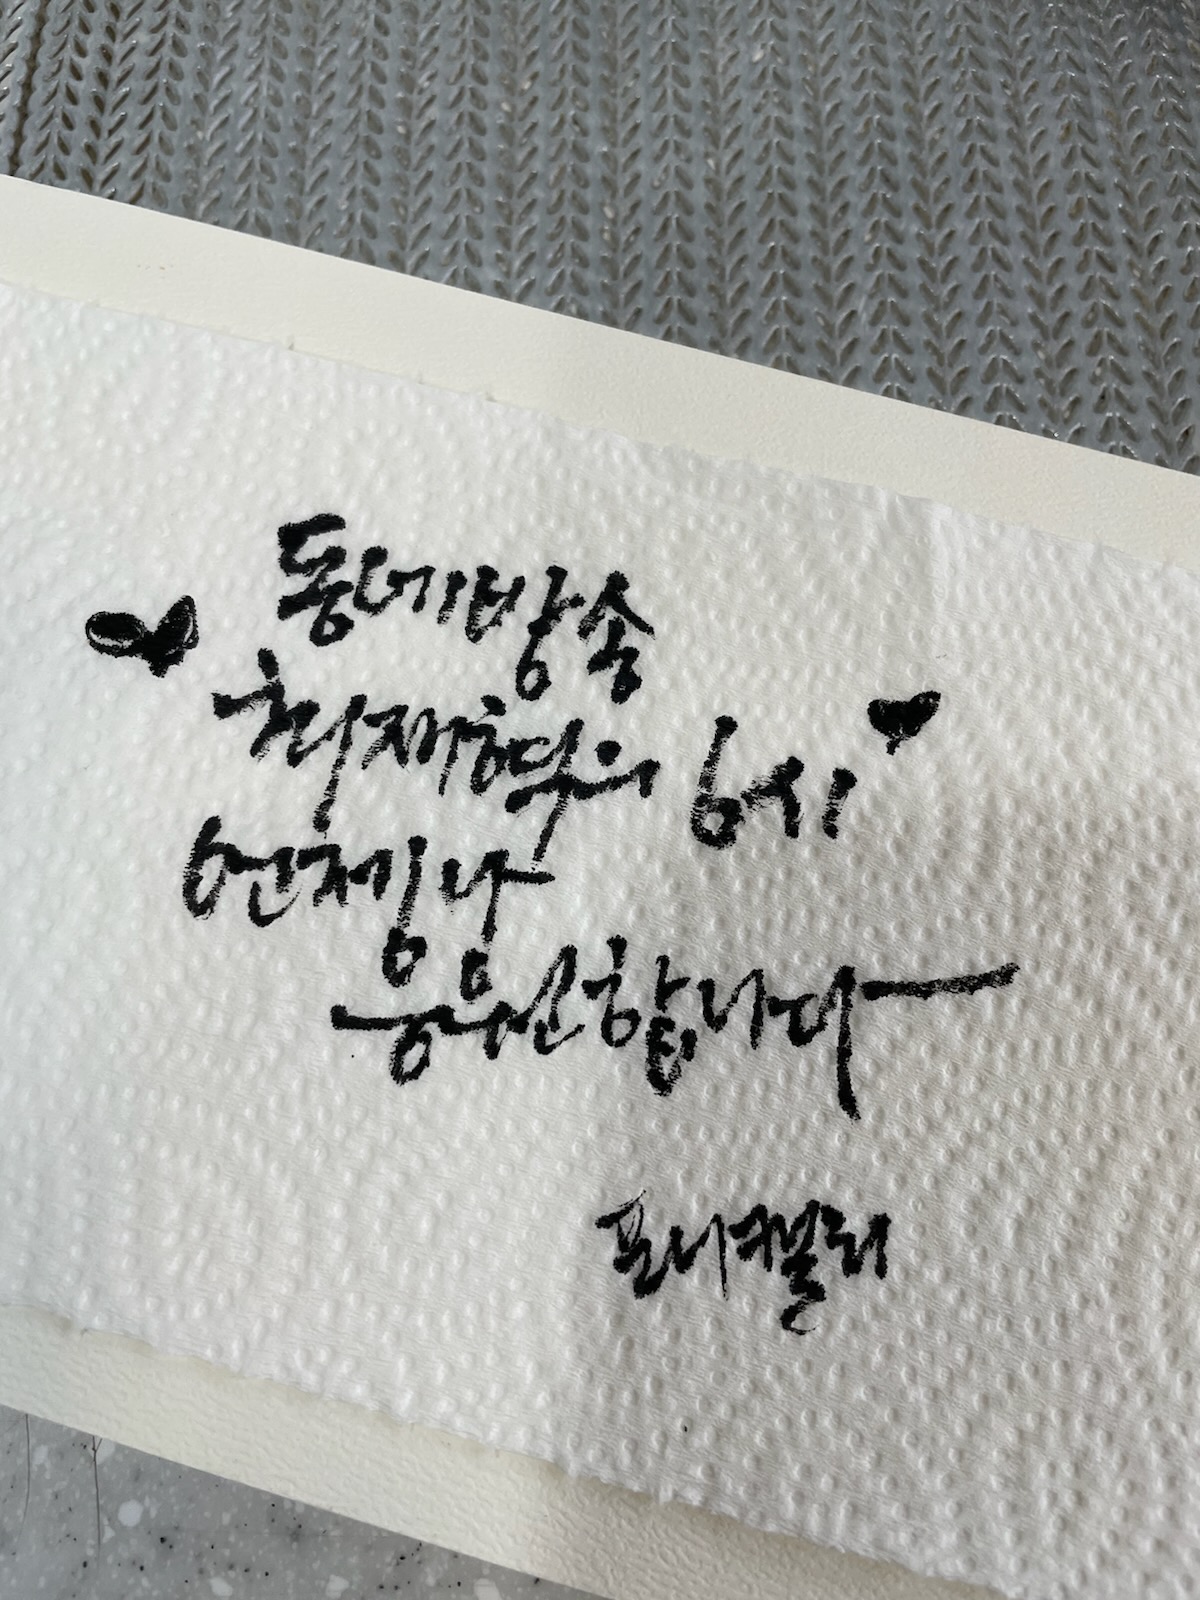 동네방송
최재혁의 6시
언제나
응원합니다
프니캘리